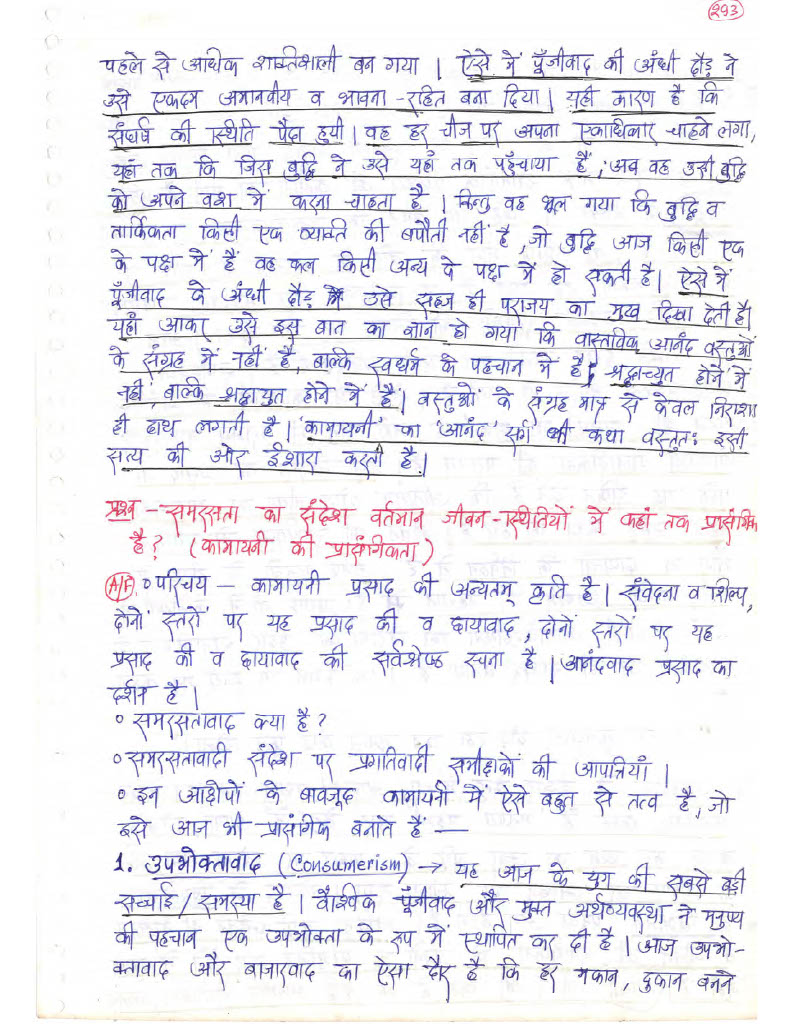 293
पहले से अधिक शक्तिशाली बन गया | ऐसे में पूँजीवाद की अंधी दौड़ ने
उसे एकदम अमानवीय व भावना-रहित बना दिया | यही कारण है कि
संघर्ष की स्थिति पैदा हुयी | वह हर चीज पर अपना एकाधिकार चाहने लगा,
यहाँ तक कि जिस बुद्धि ने उसे यहाँ तक पहुँचाया है, अब वह उसी बुद्धि
को अपने वश में करना चाहता है | किन्तु वह भूल गया कि बुद्धि व
तार्किकता किसी एक व्यक्ति की बपौती नहीं है, जो बुद्धि आज किसी एक
के पक्ष में हैं वह कल किसी अन्य के पक्ष में हो सकती है | ऐसे में
पूँजीवाद के अंधी दौड़ उसे सहज ही पराजय का मुख दिखा देती है |
यहाँ आकर उसे इस बात का ज्ञान हो गया कि वास्तविक आनंद वस्तुओं
के संग्रह में नहीं है, बल्कि स्वधर्म के पहचान में है; श्रद्धाच्युत होने में
नहीं, बल्कि श्रद्धायुत होने में है | वस्तुओं के संग्रह मात्र से केवल निराशा
ही हाथ लगती है | 'कामायनी' का 'आनंद' सर्ग की कथा वस्तुतः इसी
सत्य की ओर ईशारा करती है |
प्रश्न - समरसता का संदेश वर्तमान जीवन-स्थितियों में कहां तक प्रासंगिक
है? (कामायनी की प्रासंगिकता)
(A/F) ० परिचय — कामायनी प्रसाद की अन्यतम् कृति है | संवेदना व शिल्प,
दोनों स्तरों पर यह प्रसाद की व छायावाद, दोनों स्तरों पर यह
प्रसाद की व छायावाद की सर्वश्रेष्ठ रचना है | आनंदवाद प्रसाद का
दर्शन है |
० समरसतावाद क्या है?
० समरसतावादी संदेश पर प्रगतिवादी समीक्षकों की आपत्तियाँ |
० इन आक्षेपों के बावजूद कामायनी में ऐसे बहुत से तत्व है, जो
इसे आज भी प्रासंगिक बनाते हैं —
1. उपभोक्तावाद (Consumerism) → यह आज के युग की सबसे बड़ी
सच्चाई / समस्या है | वैश्विक पूँजीवाद और मुक्त अर्थव्यवस्था ने मनुष्य
की पहचान एक उपभोक्ता के रूप में स्थापित कर दी है | आज उपभो-
क्तावाद और बाजारवाद का ऐसा दौर है कि हर मकान, दुकान बनने